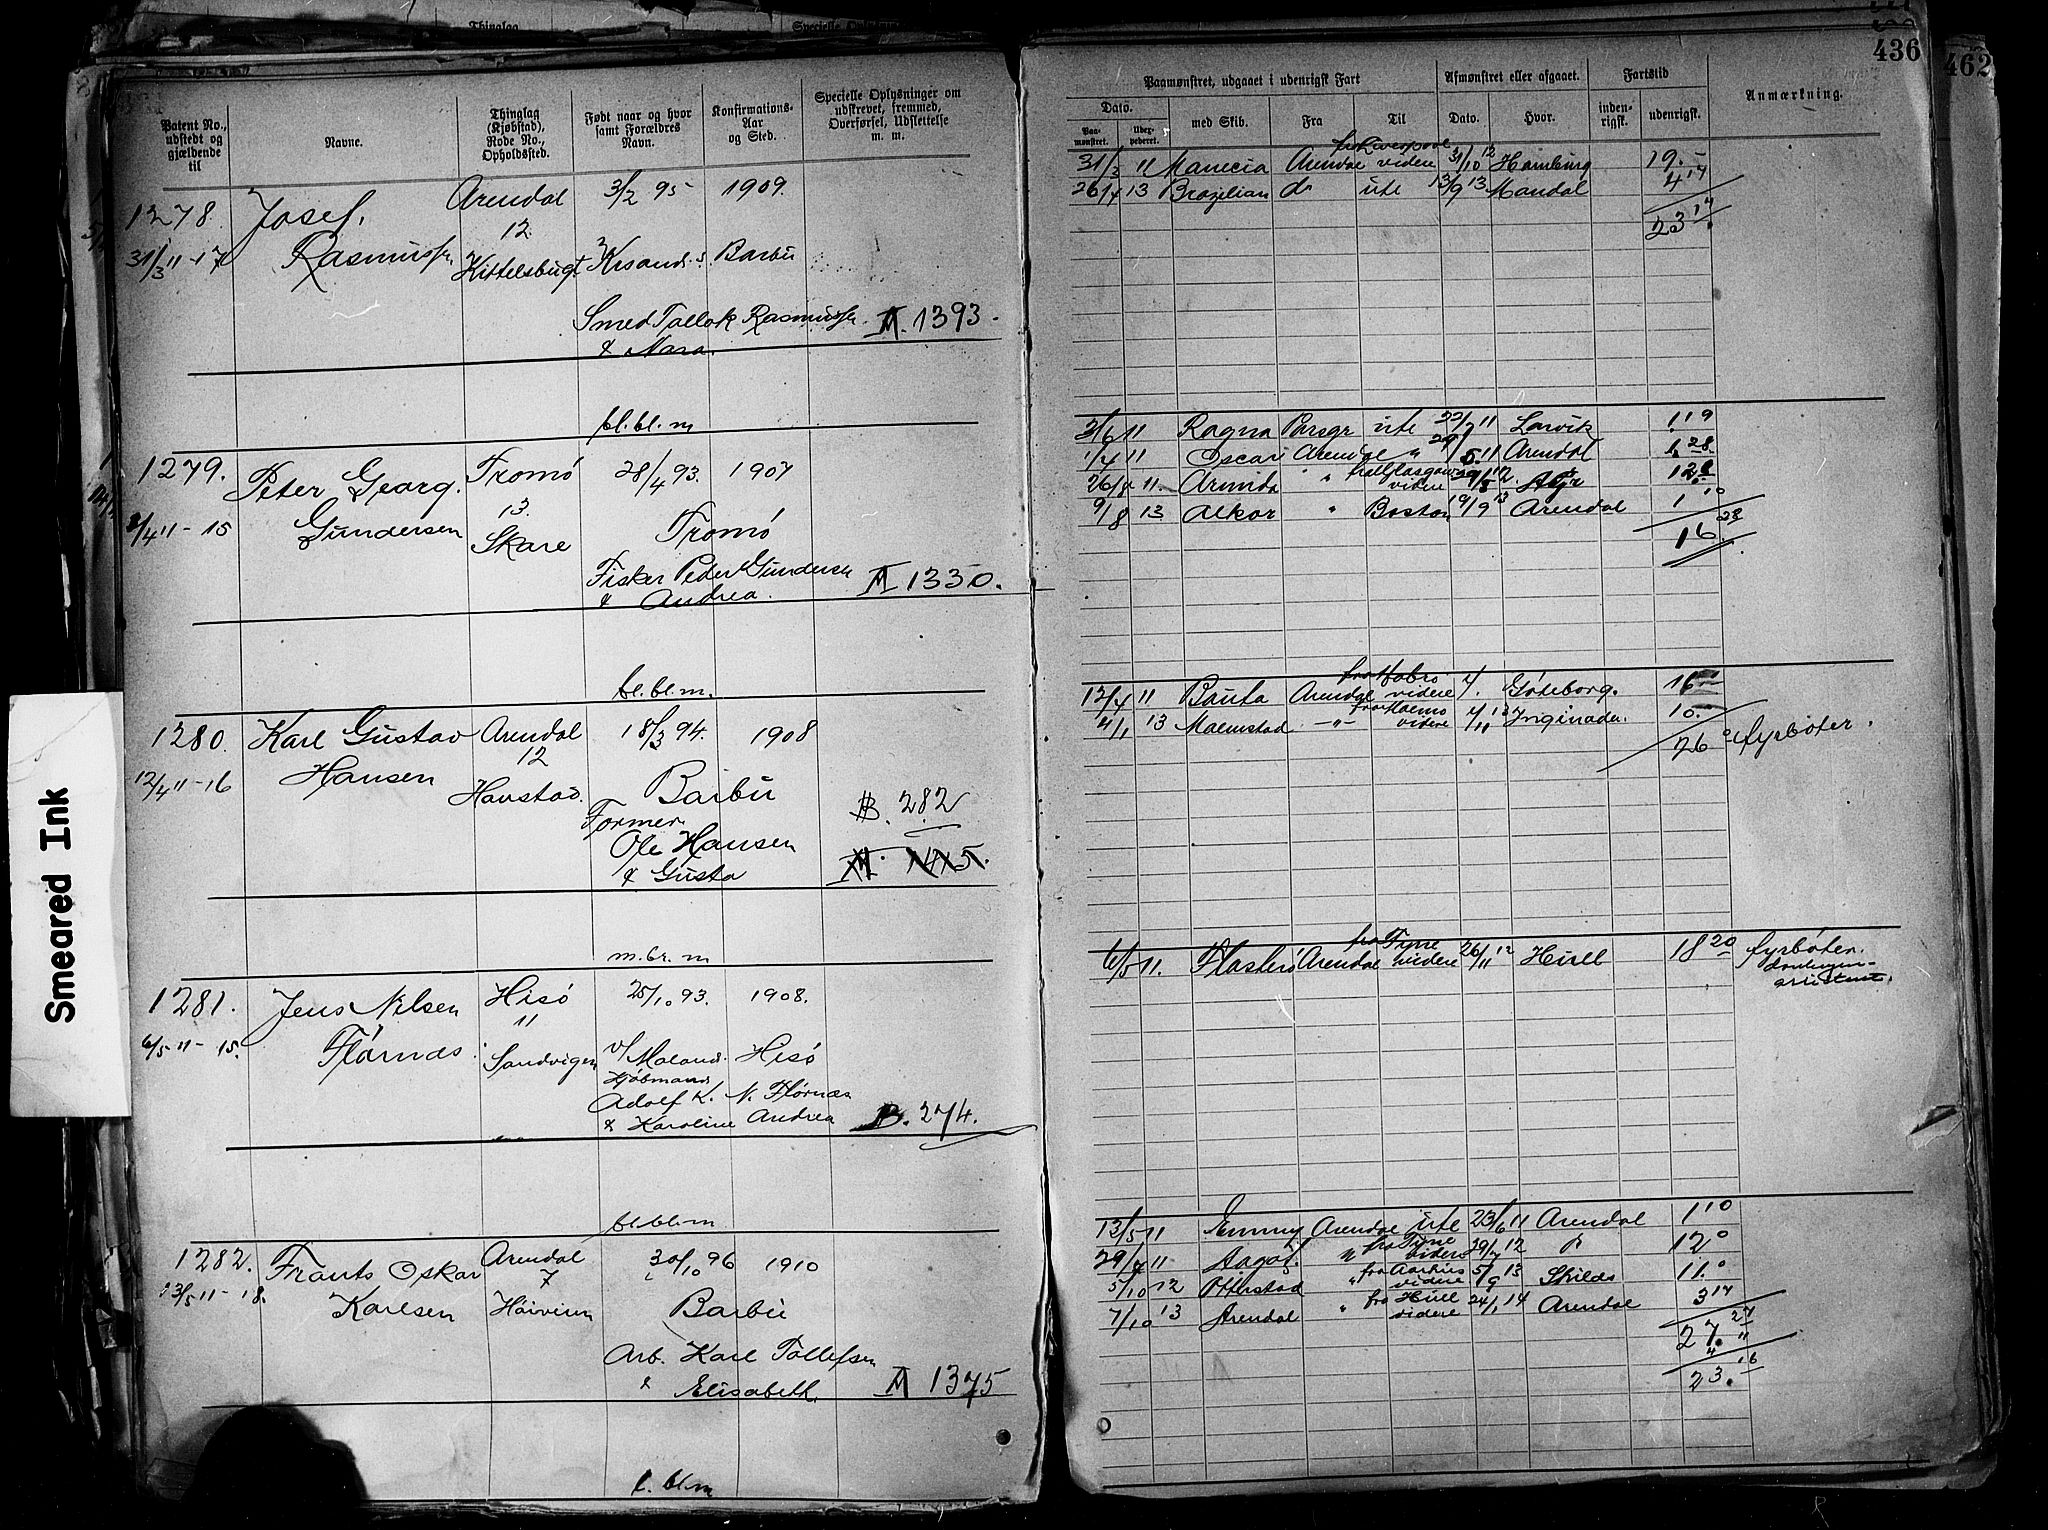 Thinglag
Specielle Oplysninger
436
462
Patent No., udstedt og gjældende til
Navne.
Thinglag (Kjøbstad), Rode No., Opholdssted.
Født naar og hvor samt Forældres Navn.
Konfirmations-Aar og Sted.
Specielle Oplysninger om udskrevet, fremmed, Overførsel, Udslettelse m. m.
1278. Josef. Arendal 3/2 95 1909.
12.
31/3 11-17 Rasmussen Kittelsbugt Krsand.s. Barbu
Smed Tallok Rasmussen A. 1393.
& Mara.
bl. bl. m
1279. Peter Georg. Tromö 28/4 93. 1907
13.
8/4 11-15 Gundersen Skare Tromö
Fisker Peder Gundersen A 1330.
& Andrea.
bl. bl. m.
1280. Karl Gustav Arendal 18/3 94. 1908
12
12/4 11-16 Hansen Havstad. Barbu
B. 282
Former
Ole Hansen
& Gusta
m. br. m
1281. Jens Nilsen Hisö 25/10 93. 1908.
11
6/5 11-15. Flörnæs Sandvigen v/ Maland. Hisö
Kjöbmand
Adolf K. N. Flörnæs
& Karoline Andrea B. 274.
bl. bl. m
1282. Frants Oskar Arendal 30/10 96 1910
7
13/5 11-18. Karlsen Barbu
Arb. Karl Tallefsen
& Elisabeth. A 1375
l. bl. m
Paamønstret, udgaaet i udenrigsk Fart
Afmønstret eller afgaaet.
Fartstid
Anmærkning.
Dato.
Paamønstret.
med Skib.
Fra
Til
Dato.
Hvor.
indenrigsk.
udenrigsk.
fra Liverpool
31/3 11 Manecia Arendal videre 31/10 12 Hamburg 19.-
26/4 13 Brazilian do ute 13/9 13 Mandal 4 17
23 17
3/6 11 Ragna Porsgr ute 22/7 11 Larvik 1 19
1/4 11 Oscar Arendal " 29/5 11 Arendal 1 28
fra Glasgow
26/8 11. Arunda " videre
9/8 13 Alkor " Boston 19/9 13 Arendal 1 10
16 23
fra Hobro
12/4 11 Bauta Arendal videre Göteborg. 16
fra Malmo
4/1 13 Malmstad -"- videre 4/11 13 10.
26 fyrböter.
fra Tyne
6/5 11. Flasterö Arendal videre 26/11 12 Hull 18 20 fyrböter.
13/5 11 Emmy Arendal ute 23/6 11 Arendal 1 10
fra Tyne
29/7 11 " videre 29/7 12 12 0
fra Aarhus
5/10 12 Otterstad " videre 5/9 13 Skilds 11. 0
fra Hull
7/10 13 Arendal " videre 24/1 14 Arendal 3 17
27. 27
4 11
23. 16
Smeared Ink